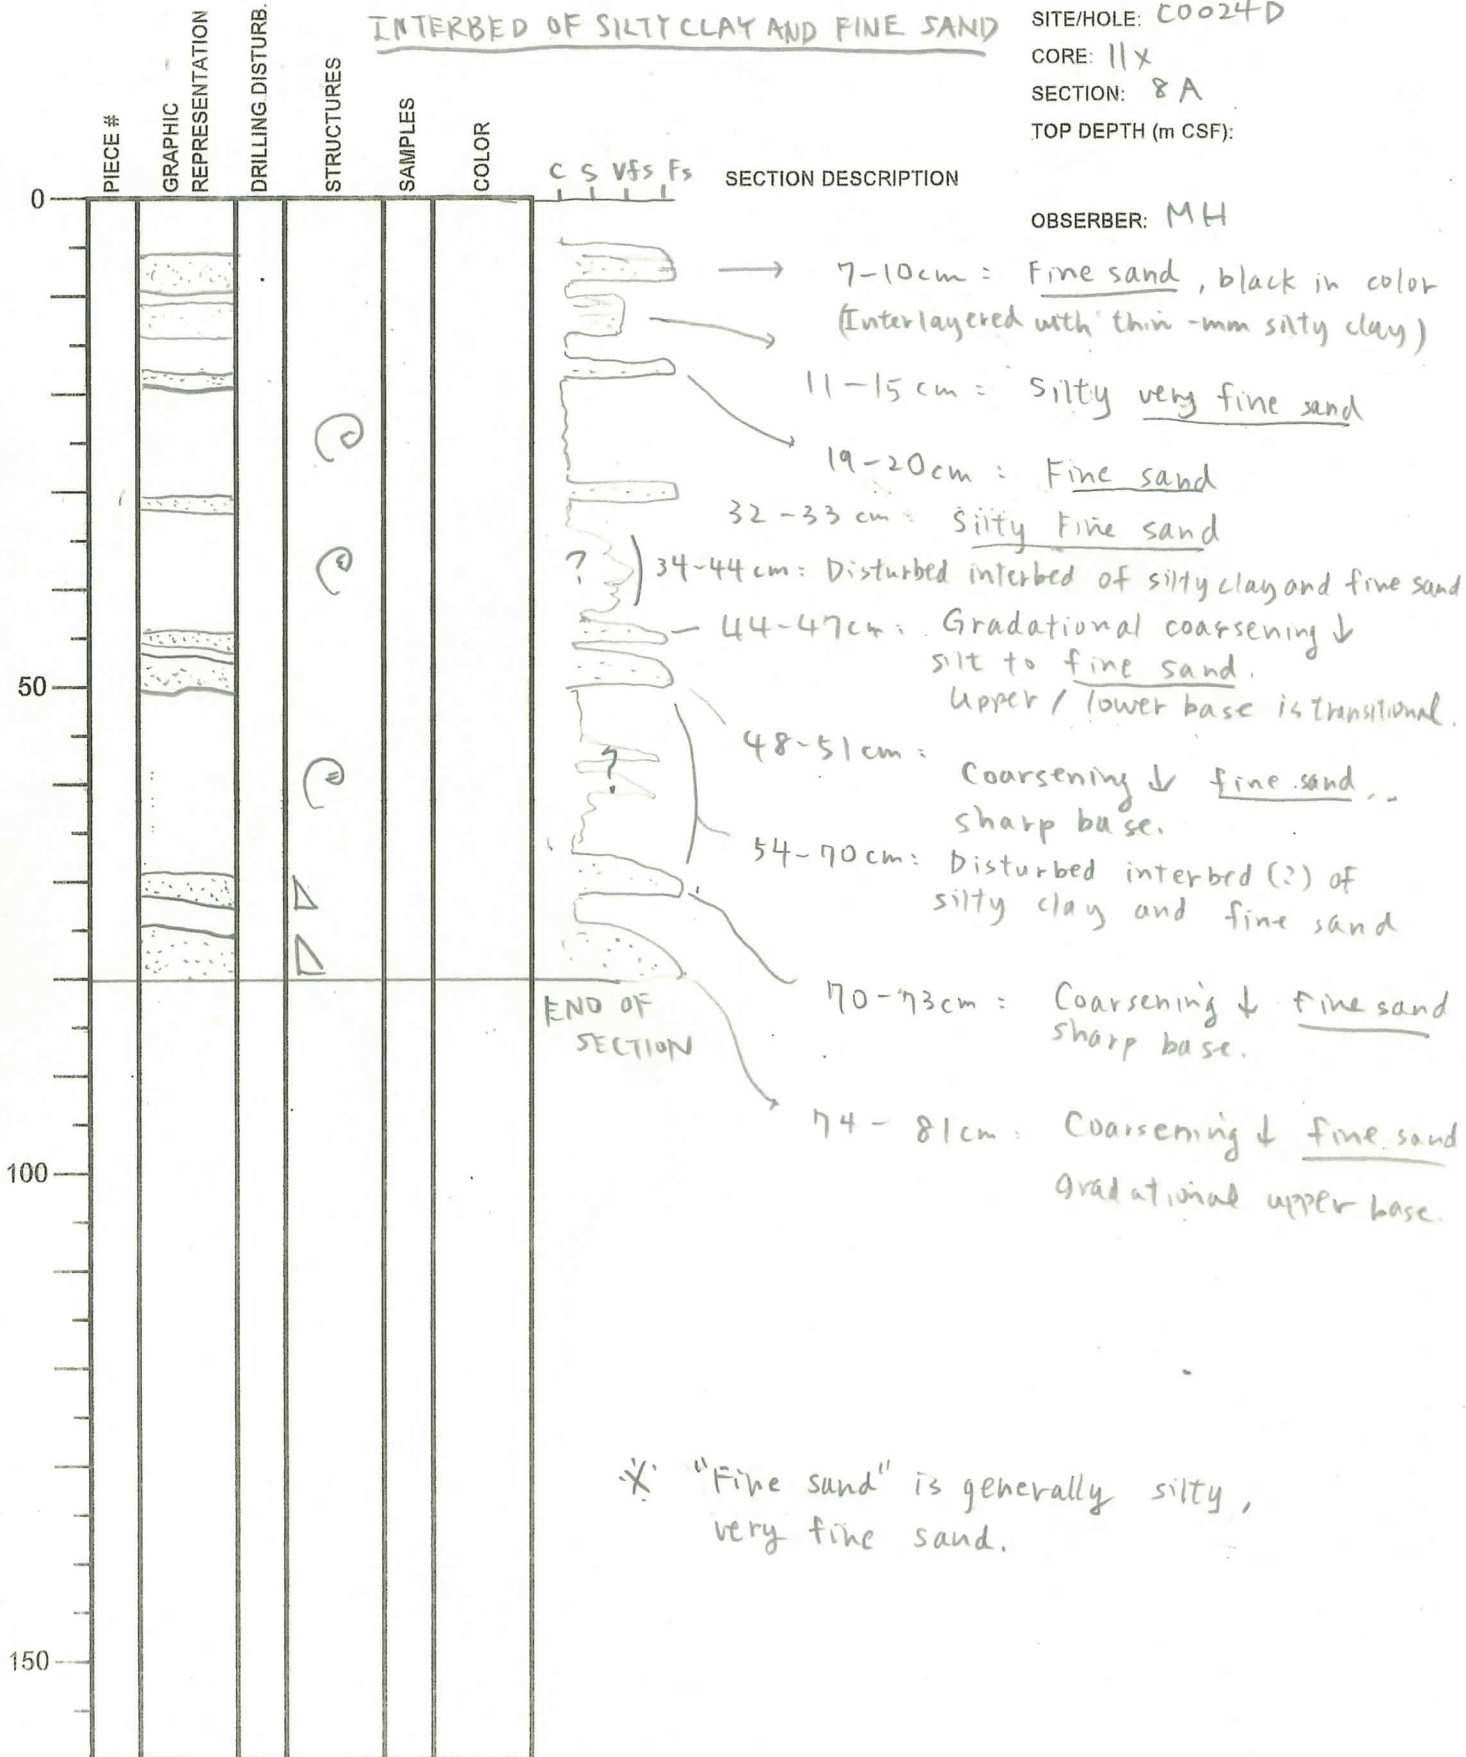 INTERBED OF SILTY CLAY AND FINE SAND
SITE/HOLE: C0024D
CORE: 11X
SECTION: 8A
TOP DEPTH (m CSF):
OBSERBER: MH
PIECE #
GRAPHIC
REPRESENTATION
DRILLING DISTURB.
STRUCTURES
SAMPLES
COLOR
C S Vfs Fs
SECTION DESCRIPTION
0
7-10cm = Fine sand, black in color
(Interlayered with thin -mm silty clay)
11-15 cm = Silty very fine sand
19-20cm : Fine sand
32-33 cm = Silty Fine sand
?
34-44cm: Disturbed interbed of silty clay and fine sand
44-47cm: Gradational coarsening ↓
silt to fine sand.
Upper / lower base is transitional.
50
48-51cm =
Coarsening ↓ fine sand,
sharp base.
?
54-70cm: Disturbed interbed (?) of
silty clay and fine sand
70-73cm = Coarsening ↓ Fine sand
sharp base.
END OF
SECTION
74 - 81cm: Coarsening ↓ fine sand
gradational upper base.
100
※ "Fine sand" is generally silty,
very fine sand.
150